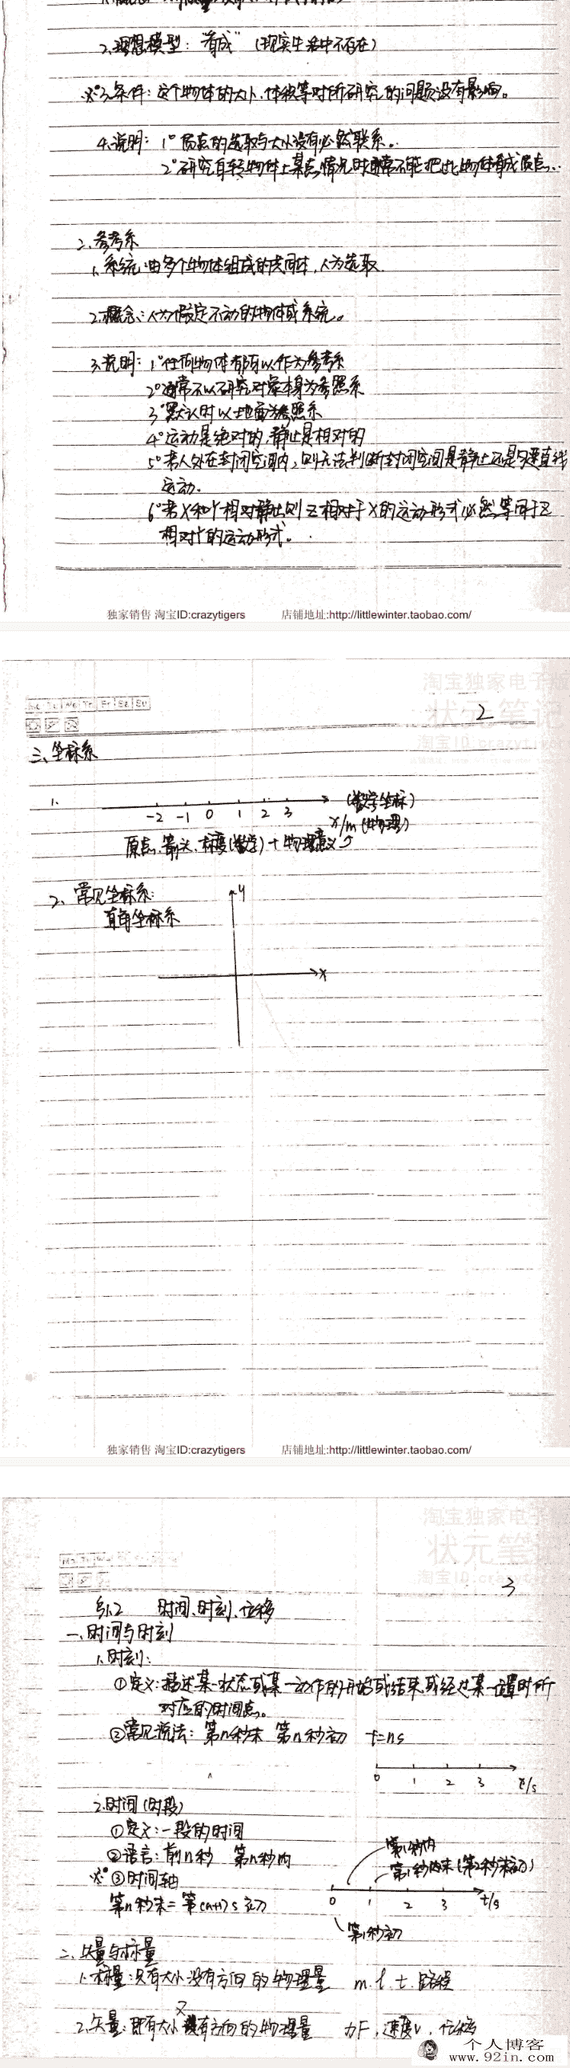 2.理想模型:"看成"(现实生活中不存在)
※3.条件:这个物体的大小、体积等对所研究的问题没有影响。
4.说明:1°质点的选取与大小没有必然联系。
2°研究自转物体上某点情况时通常不能把此物体看成质点。
二、参考系
1.系统:由多个物体组成的共同体,人为选取.
2.概念:人为假定不动的物体或系统。
3.说明:1°任何物体都可以作为参考系
2°通常不以研究对象本身为参照系
3°默认时以地面为参照系
4°运动是绝对的,静止是相对的
5°若人处在封闭空间内,则无法判断封闭空间是静止还是匀速直线
运动.
6°若X和Y相对静止则Z相对于X的运动形式必然等同于Z
相对Y的运动形式。
独家销售 淘宝ID:crazytigers 店铺地址:http://littlewinter.taobao.com/
淘宝独家电子版
状元笔记
淘宝ID:crazytigers
2
三、坐标系
1.
-2 -1 0 1 2 3 (数学坐标)
x/m (物理)
原点、箭头、标度(数学)+物理意义
2、常见坐标系:
直角坐标系
y
x
独家销售 淘宝ID:crazytigers 店铺地址:http://littlewinter.taobao.com/
淘宝独家电子
状元笔
淘宝ID:cra
3
§1.2 时间、时刻、位移
一、时间与时刻
1.时刻:
①定义:描述某一状态或某一动作的开始或结束或经过某一位置时所
对应的时间点。
②常见说法:第n秒末 第n秒初 t=ns
0 1 2 3 t/s
2.时间(时段)
①定义:一段的时间
②语言:前n秒 第n秒内
※③时间轴
第n秒末=第(n+1)s初
第1秒内
第1秒内末(第2秒初)
0 1 2 3 t/s
第1秒初
二、矢量与标量
1.标量:只有大小没有方向的物理量 m. l. t. 路程
2.矢量:既有大小又有方向的物理量 力F,速度v,位移
个人博客
www.92in.com